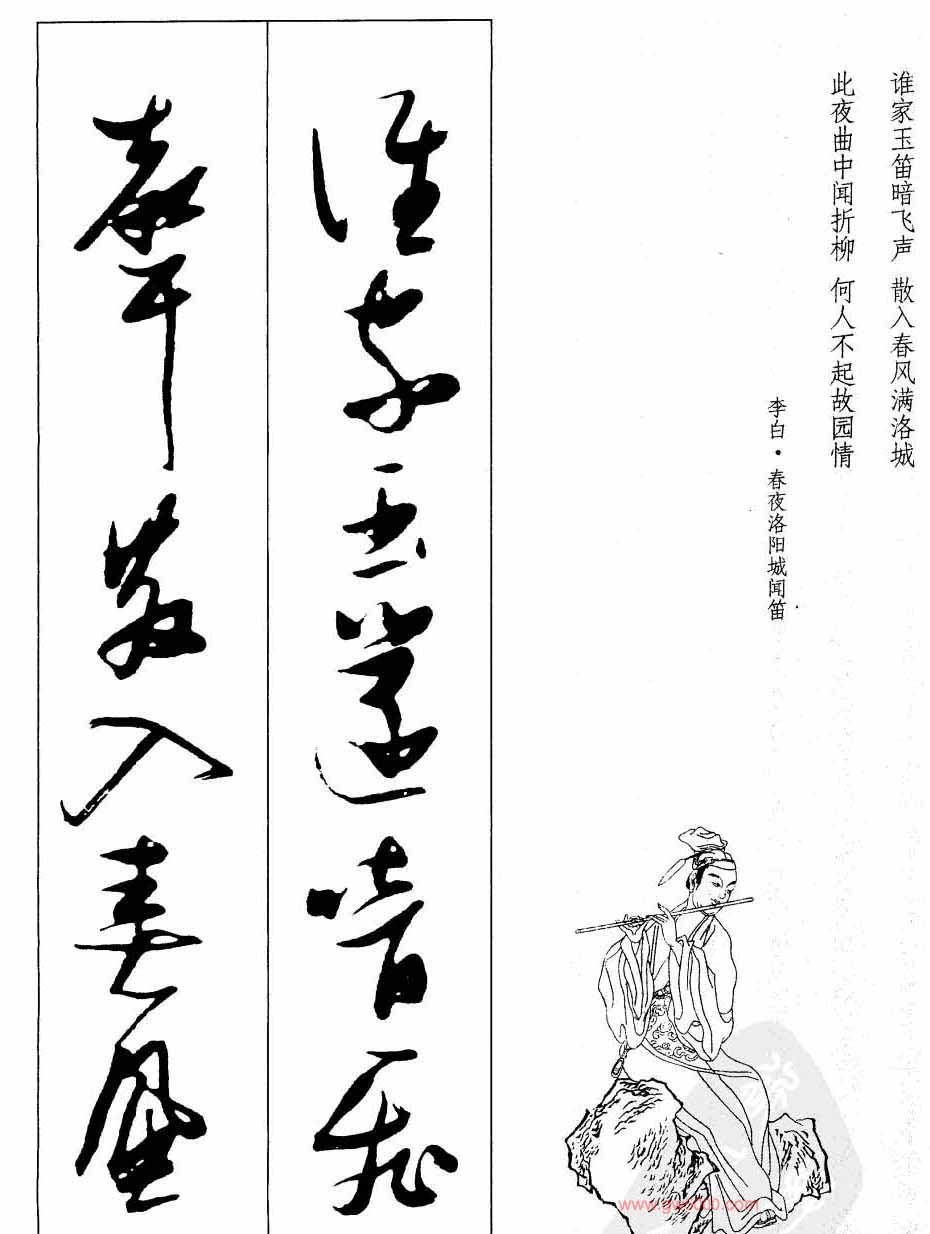 谁家玉笛暗飞声 散入春风满洛城
此夜曲中闻折柳 何人不起故园情
李白·春夜洛阳城闻笛
誰家玉篴暗飛
聲散入春風
www.gw5000.com